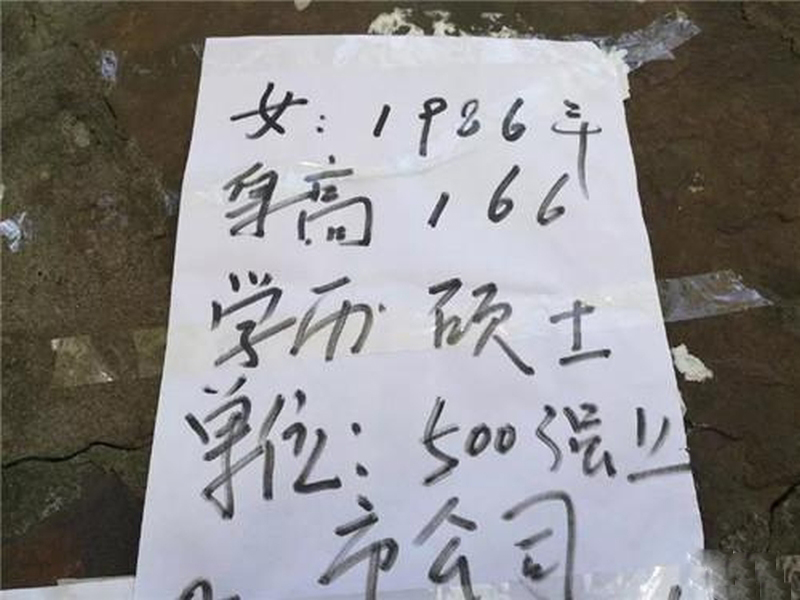 女：1986年
身高 166
学历 硕士
单位：500强上
市公司